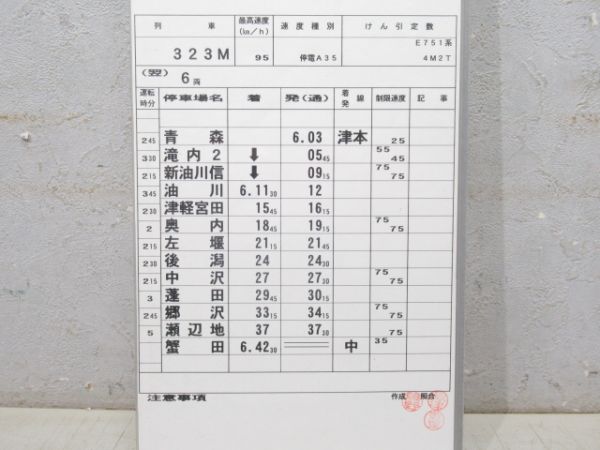 列 車 最高速度(㎞/h) 速度種別 けん引定数
323M 95 停電A35 E751系 4M2T
(翌) 6両
運転時分 停車場名 着 発(通) 着発線 制限速度 記事
青森 6.03 津本 25
245 滝内2 ↓ 0545 55 45
330 新油川信 ↓ 0915 75 75
215 油川 6.1130 12
345 津軽宮田 1545 1615
230 奥内 1845 1915 75 75
2 左堰 2115 2145
215 後潟 24 2430
230 中沢 27 2730 75 75
215 蓬田 2945 3015
3 郷沢 3315 3415 75 75
245 瀬辺地 37 3730 75
5 蟹田 6.4230 中 35
注意事項 作成 照合